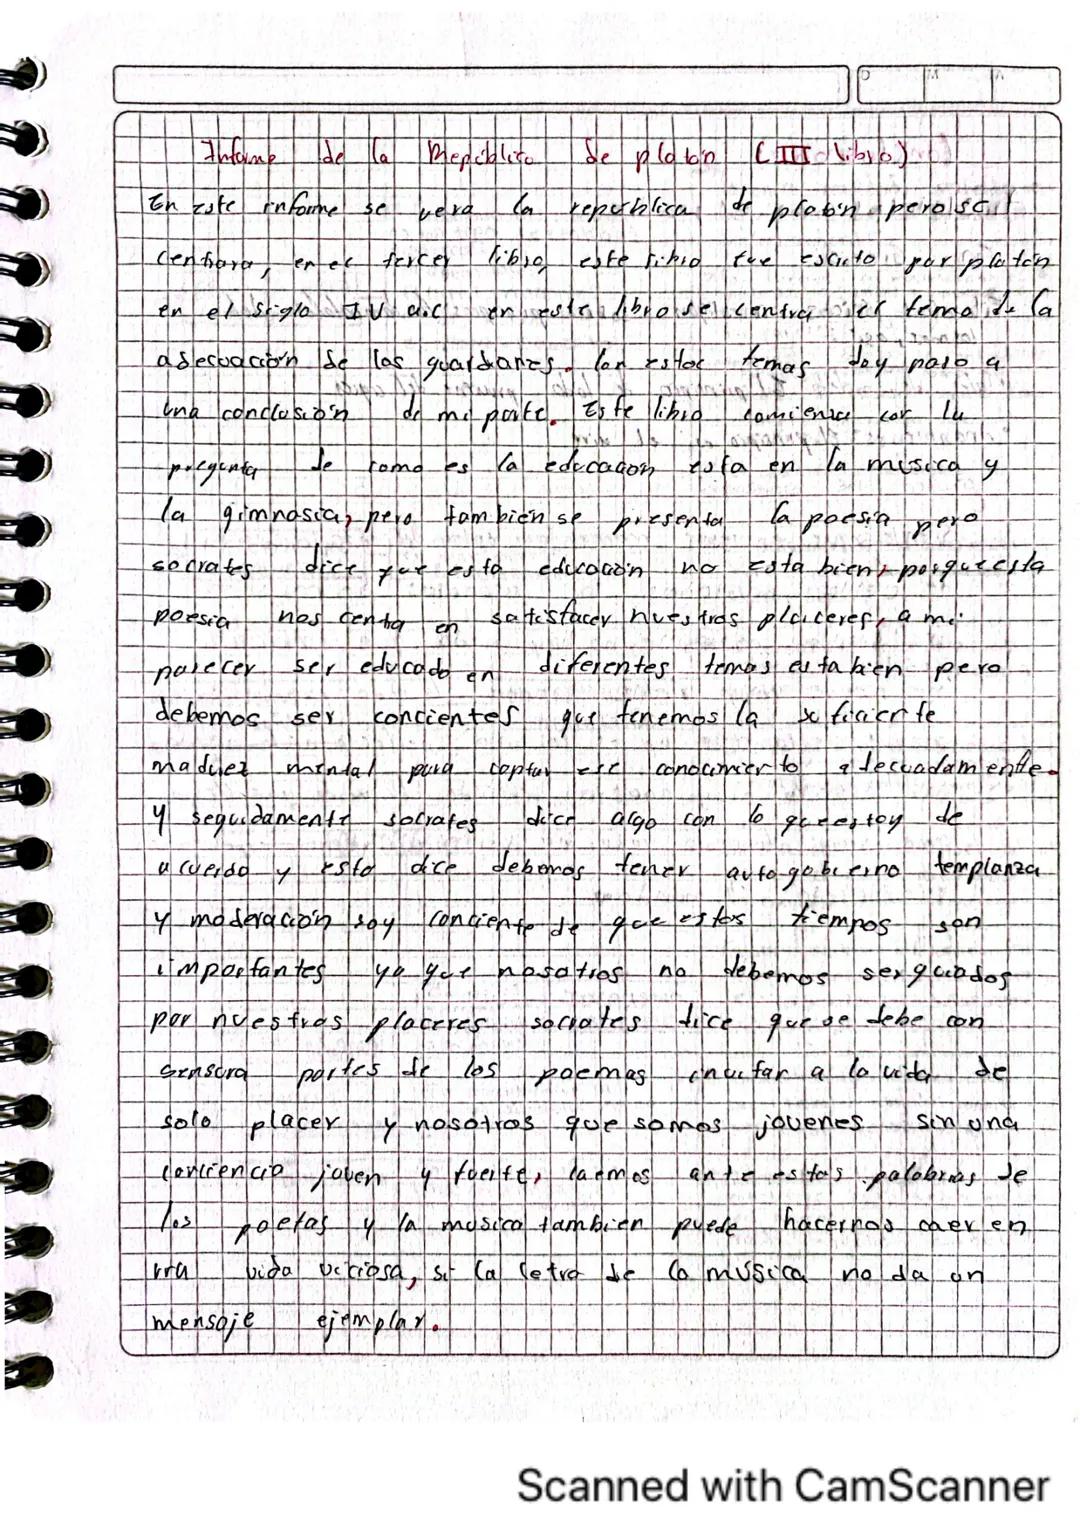 Informe de la Republica de platon (III libro)
En este informe se vera la republica de platon pero se
centrara, en el tercer libro, este libro fue escrito por platon
en el siglo IV a.c en este libro se centra el tema de la
adecuación de los guardianes. Con estos temas doy paso a
una conclusión de mi parte. Este libro comienza con la
pregunta de como es la educacion esta en la musica y
la gimnasia, pero tambien se presenta la poesia pero
socrates dice que esta educación no esta bien, porque esta
poesia nos centra en satisfacer nuestros placeres, a mi
parecer ser educado en diferentes temas esta bien pero
debemos ser concientes que tenemos la suficiente
madurez mental para captar ese conocimiento adecuadamente.
Y seguidamente socrates dice algo con lo que estoy de
acuerdo y esto dice debemos tener autogobierno templanza
y moderación soy conciente de que estos tiempos son
importantes ya que nosotros no debemos ser guiados
por nuestros placeres socrates dice que se debe con
sensura partes de los poemas a la vida de
solo placer y nosotros que somos jovenes sin una
conciencia joven y fuerte, caemos ante estas palabras de
los poetas y la musica tambien puede hacernos caer en
una vida viciosa, si la letra de la mussica no da un
mensaje ejemplar.
Scanned with CamScanner